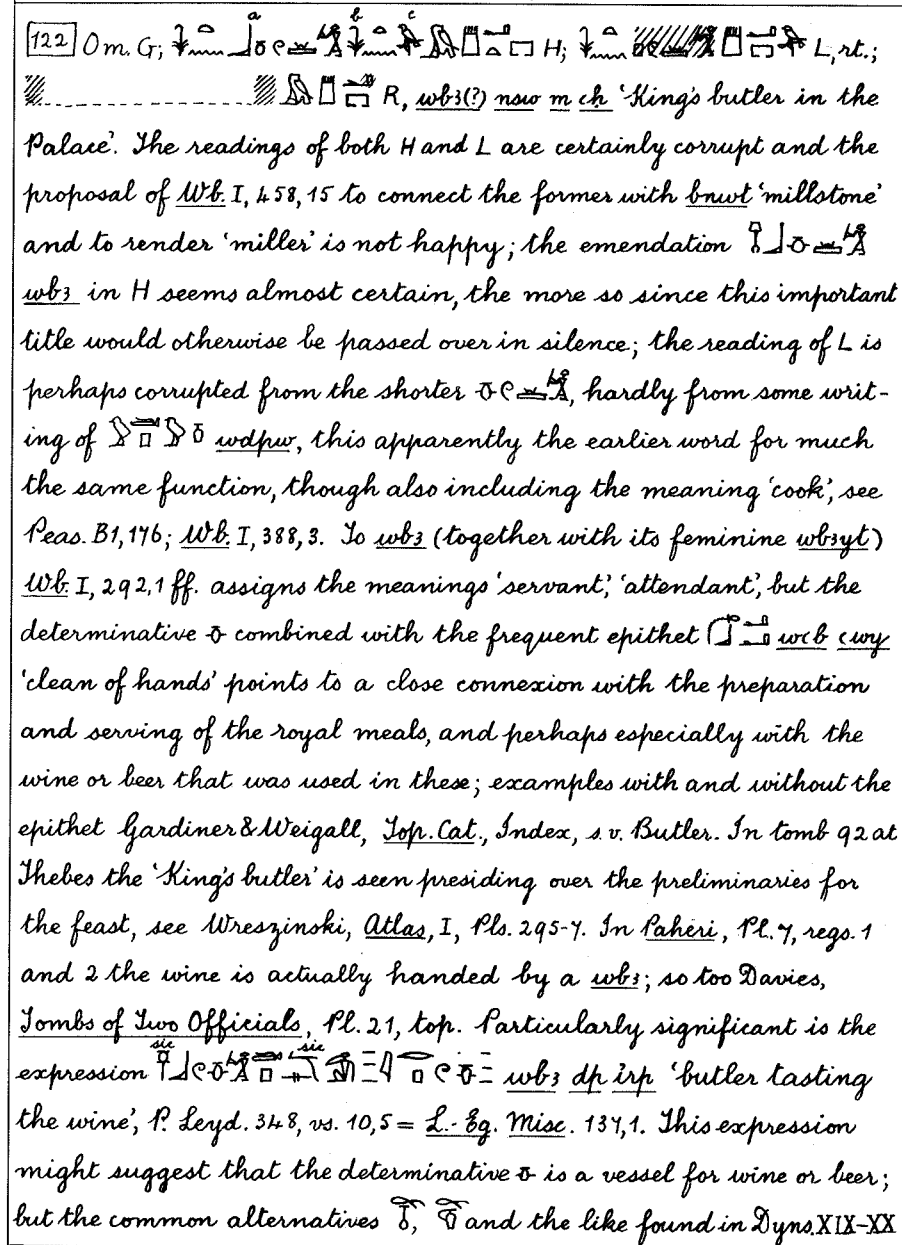 122 Om. G; a b c H; L, rt.;
R, wbꜣ(?) nsw m ꜥḥ 'King's butler in the
Palace'. The readings of both H and L are certainly corrupt and the
proposal of Wb. I, 458, 15 to connect the former with bnwt 'millstone'
and to render 'miller' is not happy; the emendation
wbꜣ in H seems almost certain, the more so since this important
title would otherwise be passed over in silence; the reading of L is
perhaps corrupted from the shorter , hardly from some writ-
ing of wdpw, this apparently the earlier word for much
the same function, though also including the meaning 'cook', see
Peas. B1, 176; Wb. I, 388, 3. To wbꜣ (together with its feminine wbꜣyt)
Wb. I, 292, 1 ff. assigns the meanings 'servant', 'attendant', but the
determinative combined with the frequent epithet wꜥb ꜥwy
'clean of hands' points to a close connexion with the preparation
and serving of the royal meals, and perhaps especially with the
wine or beer that was used in these; examples with and without the
epithet Gardiner & Weigall, Top. Cat., Index, s.v. Butler. In tomb 92 at
Thebes the 'King's butler' is seen presiding over the preliminaries for
the feast, see Wreszinski, Atlas, I, Pls. 295-7. In Paheri, Pl. 7, regs. 1
and 2 the wine is actually handed by a wbꜣ; so too Davies,
Tombs of Two Officials, Pl. 21, top. Particularly significant is the
expression sic sic wbꜣ dp irp 'butler tasting
the wine', P. Leyd. 348, vs. 10, 5 = L.-Eg. Misc. 137, 1. This expression
might suggest that the determinative is a vessel for wine or beer;
but the common alternatives , and the like found in Dyns. XIX-XX